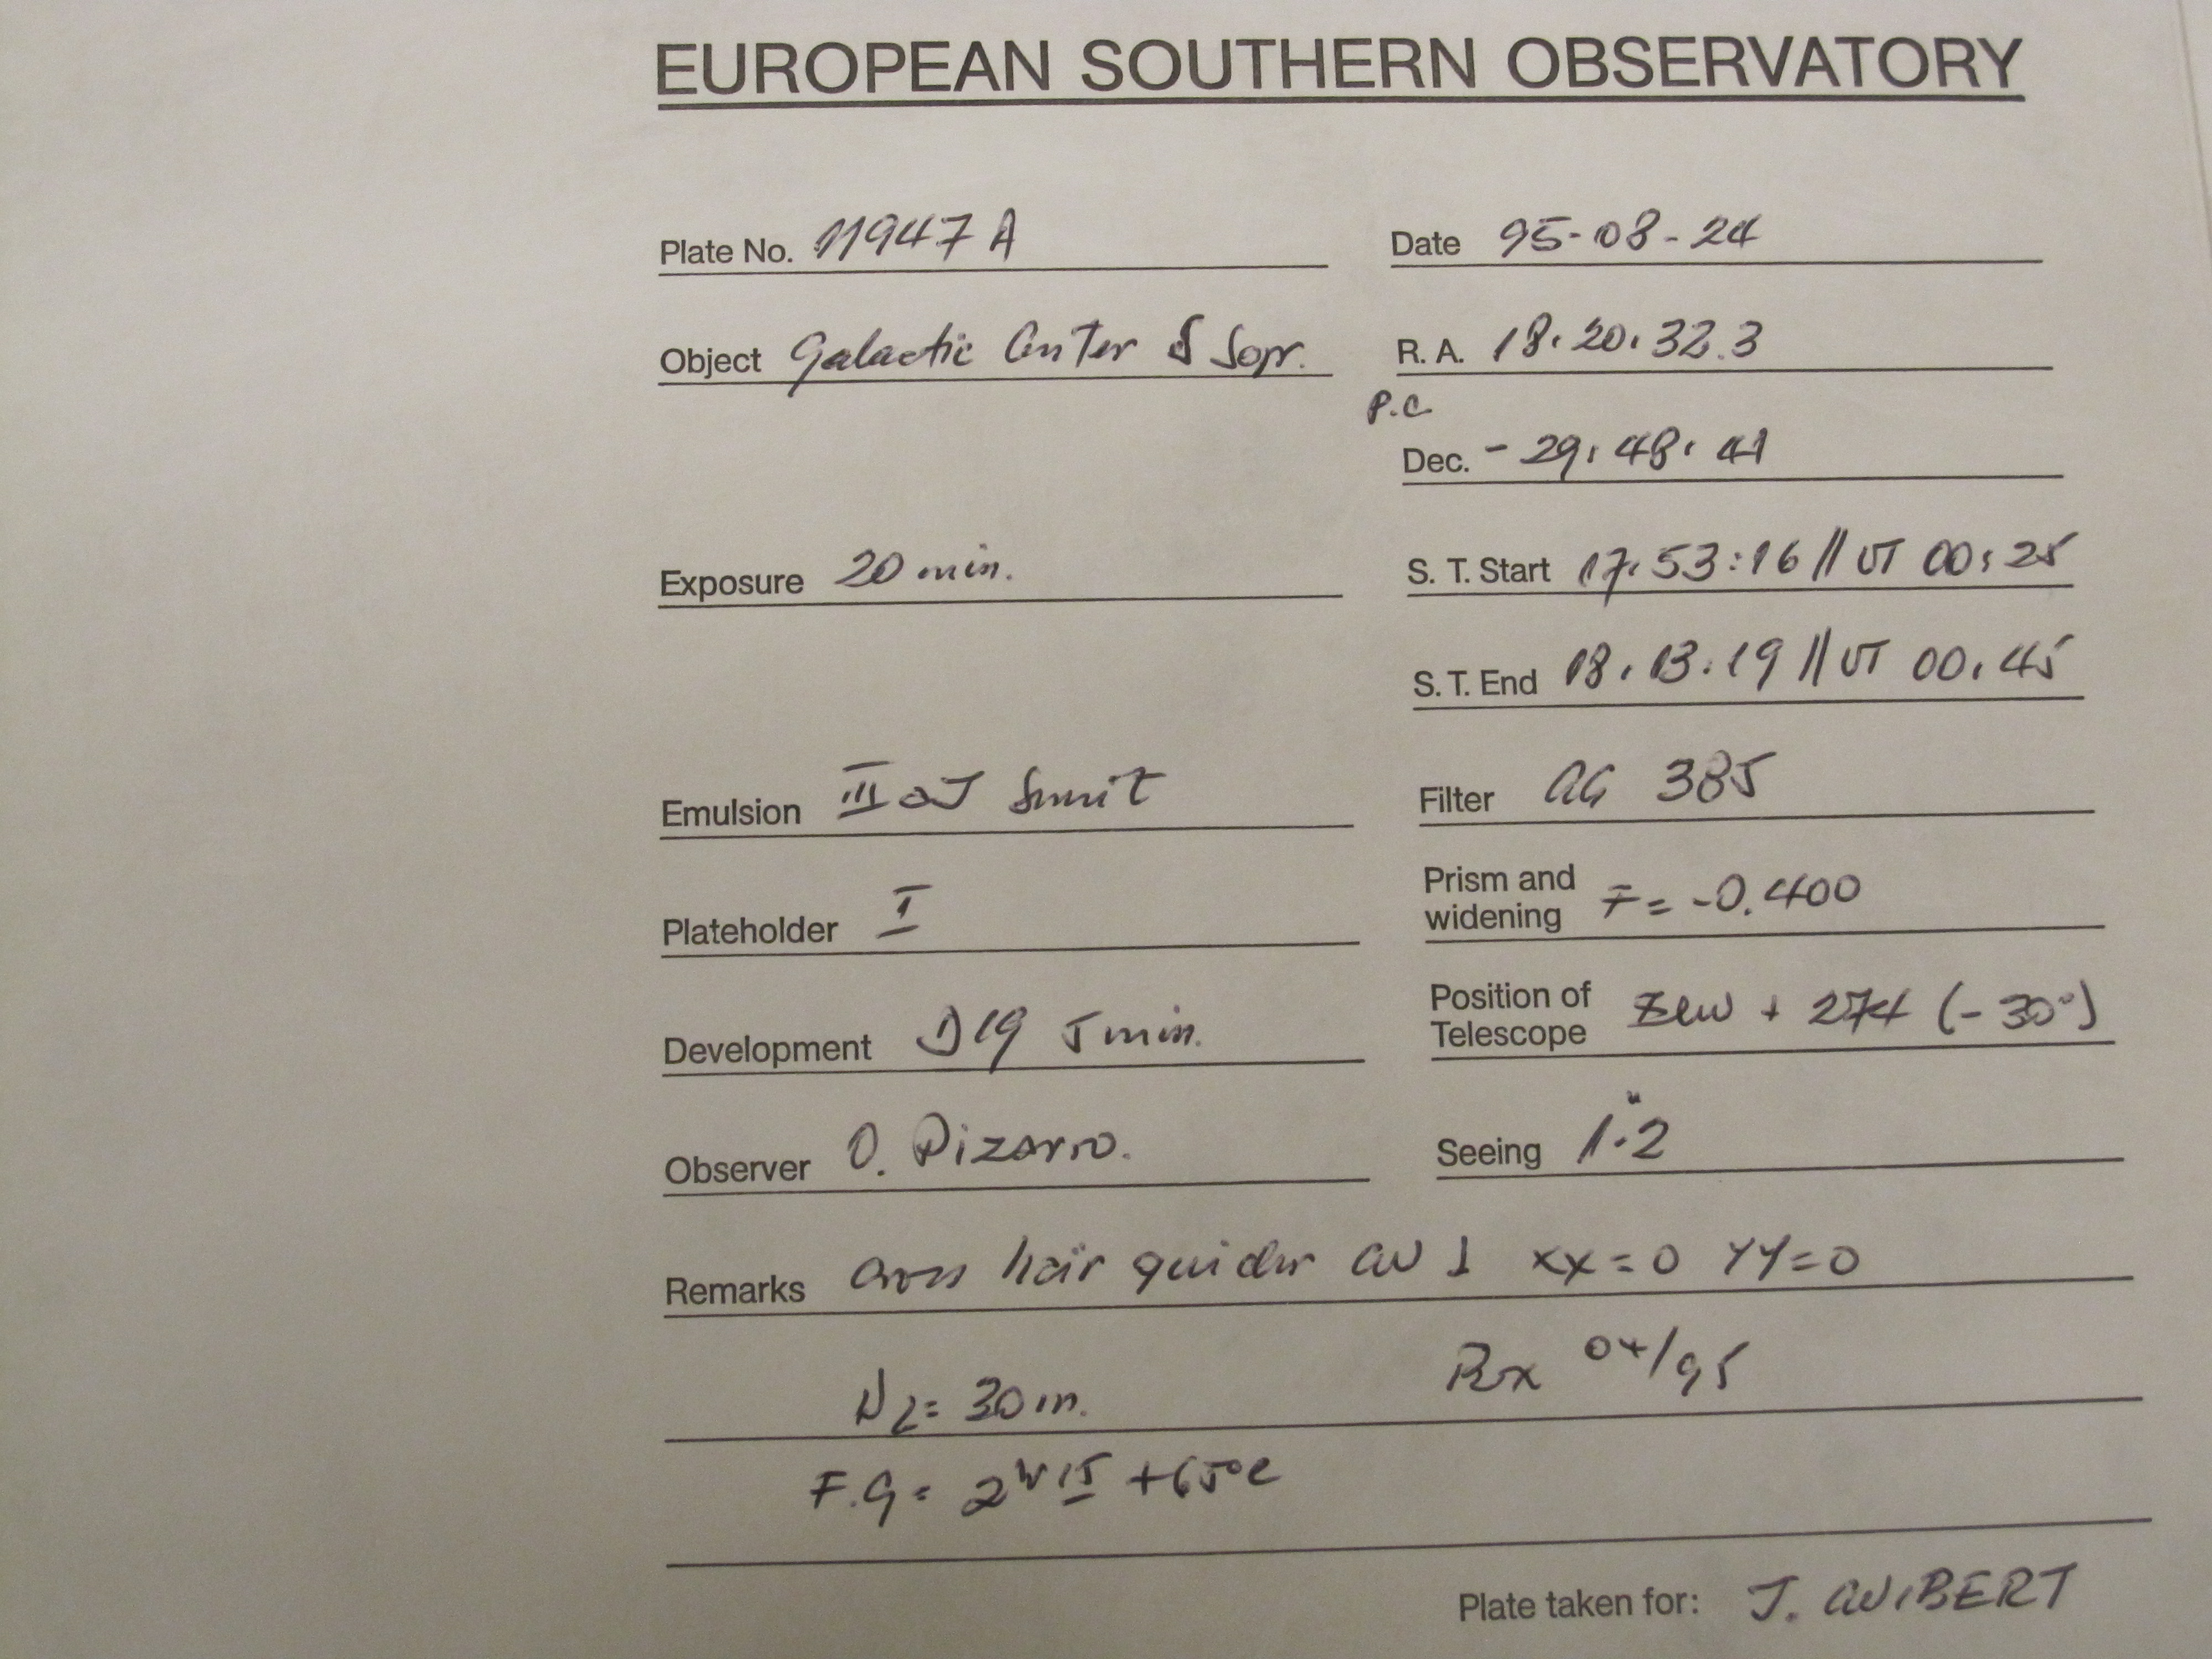 EUROPEAN SOUTHERN OBSERVATORY
Plate No. 11947 A
Date 95-08-24
Object Galactic Center
R. A. 18:20:32.3
P.C
Dec. - 29:48:41
Exposure 20 min.
S. T. Start 17:53:16 // UT 00:25
S. T. End 18:13:19 // UT 00:45
Emulsion III aJ
Filter GG 385
Plateholder I
Prism and widening F = -0.400
Development D19 5 min.
Position of Telescope + 274 (-30°)
Observer O. Pizarro.
Seeing 1.2"
Remarks Cross hair guider XX = 0 YY = 0
N2 = 30 m.
Rx 04/95
F.G = 2h 15 +65°C
Plate taken for: J. GUIBERT